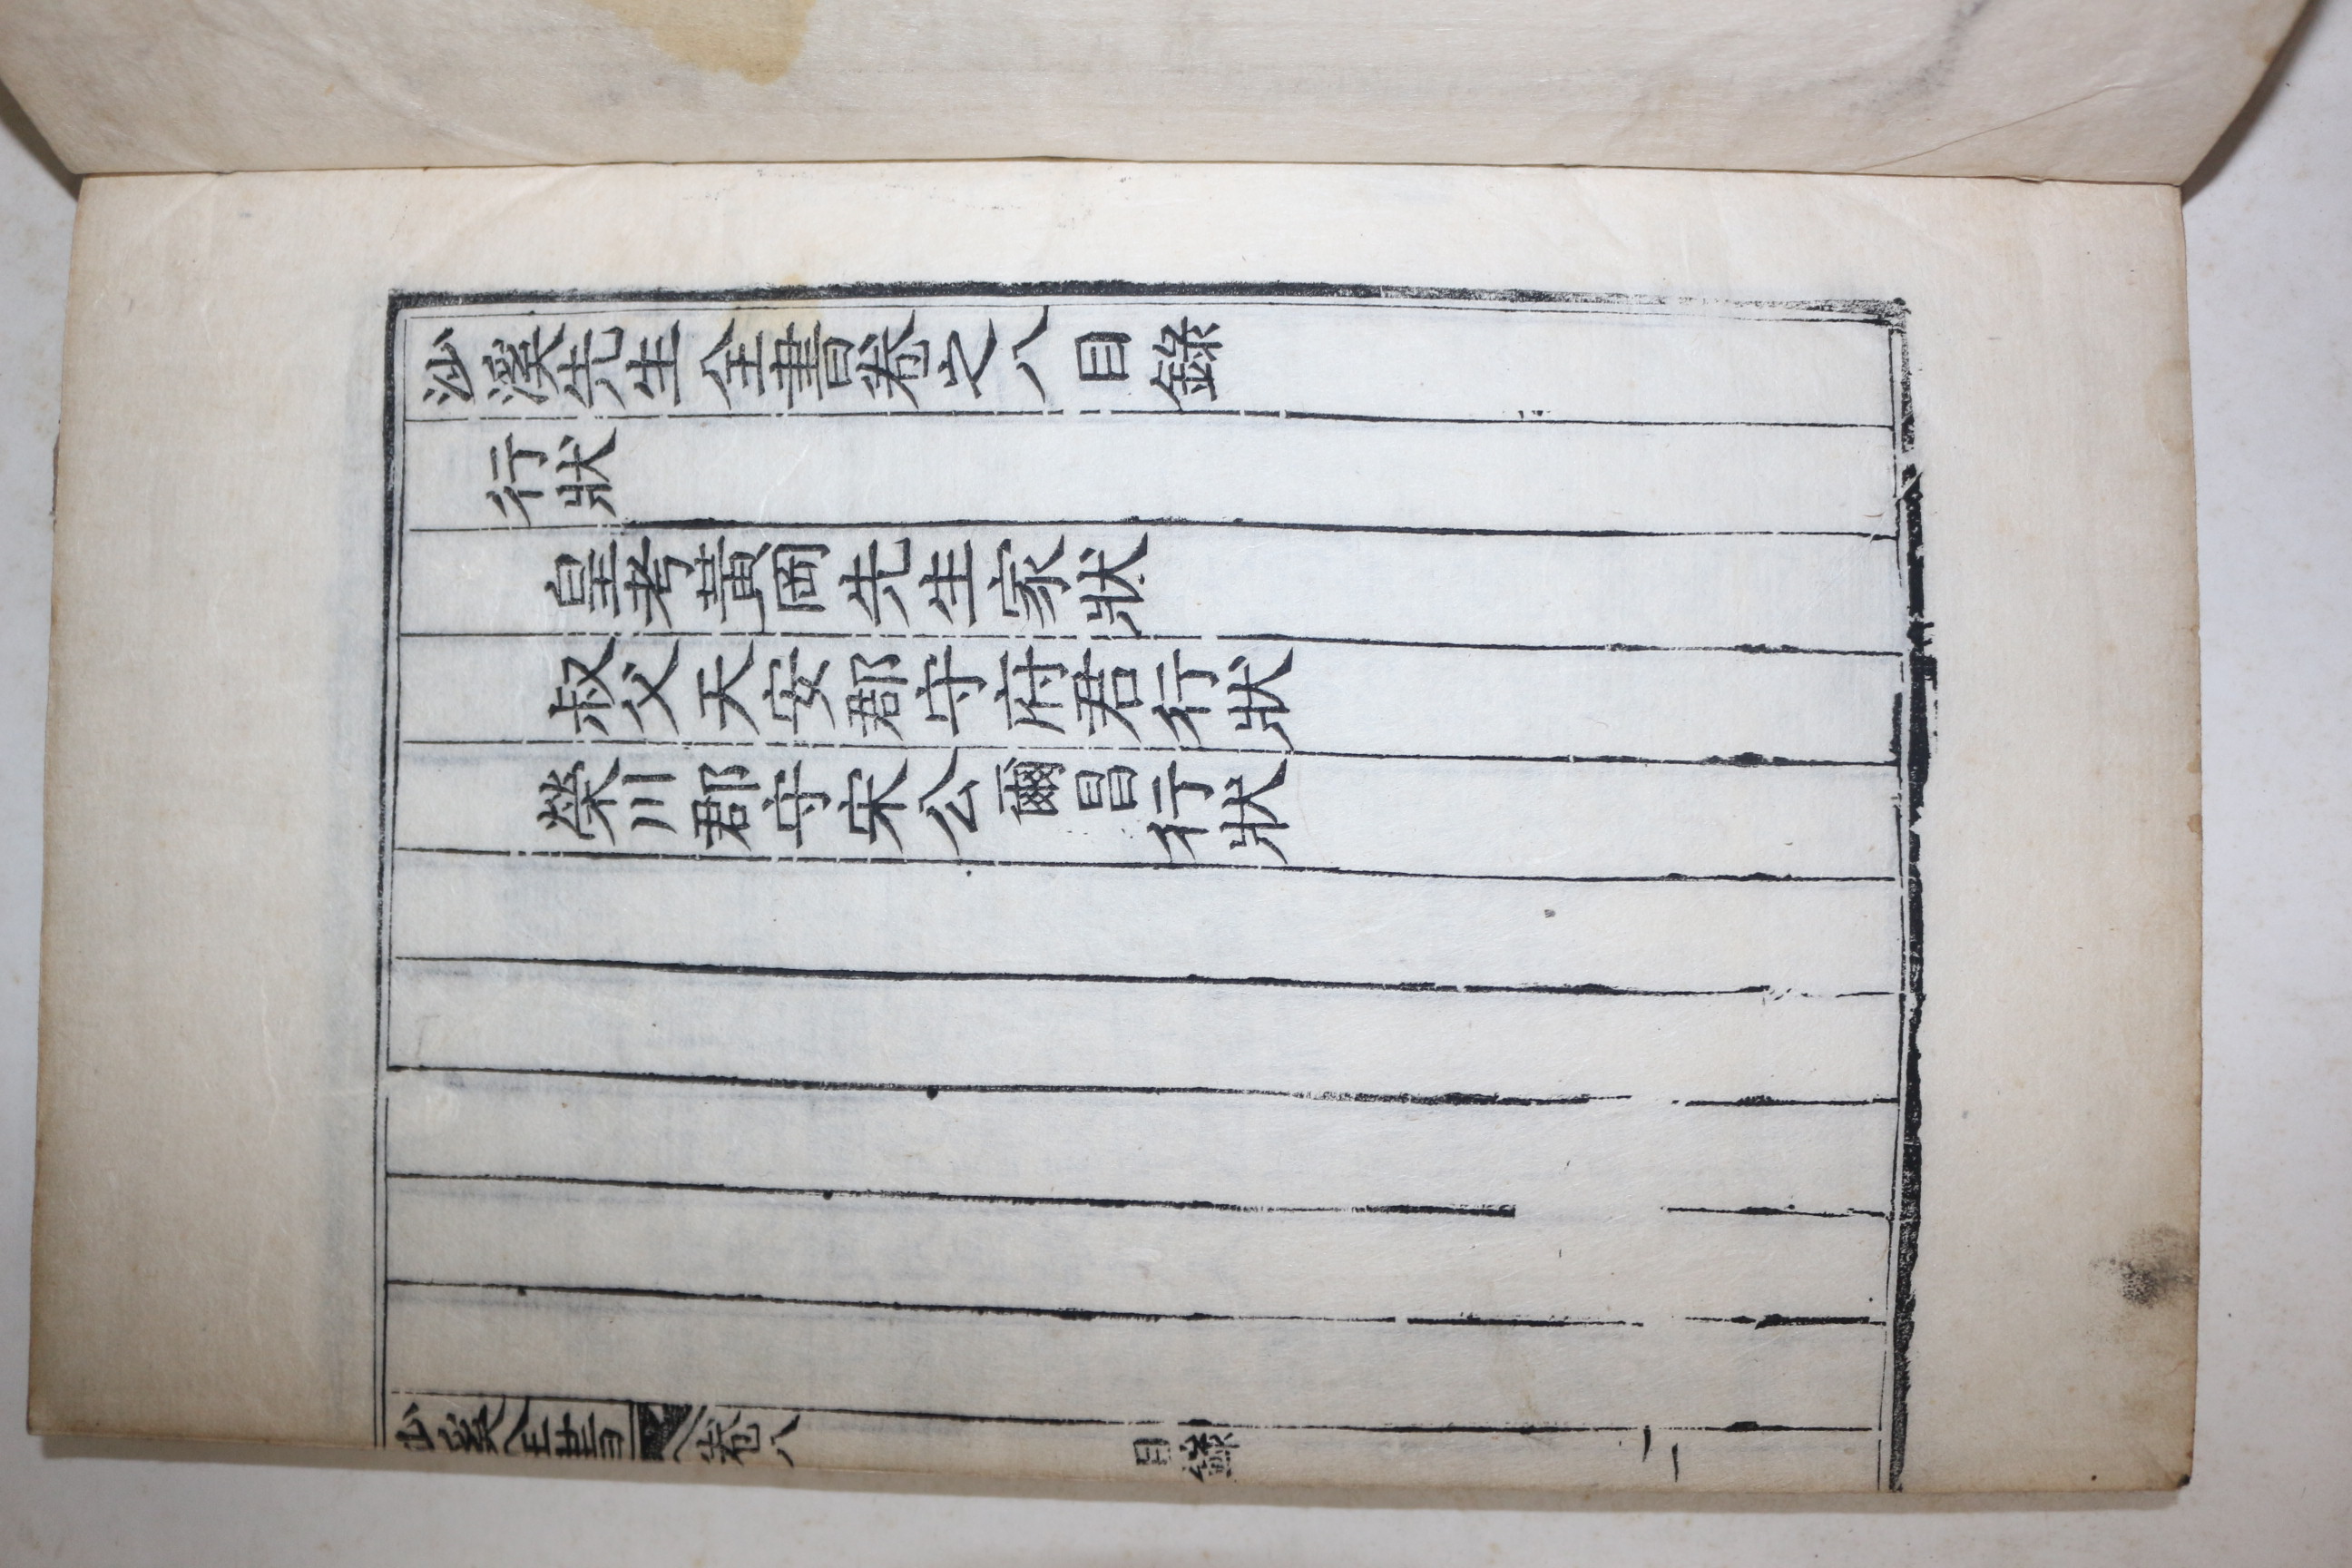 沙溪先生全書卷之八目錄
行狀
皇考黃岡先生家狀
叔父天安郡守府君行狀
榮川郡守宋公爾昌行狀
沙溪全書
卷八
目錄